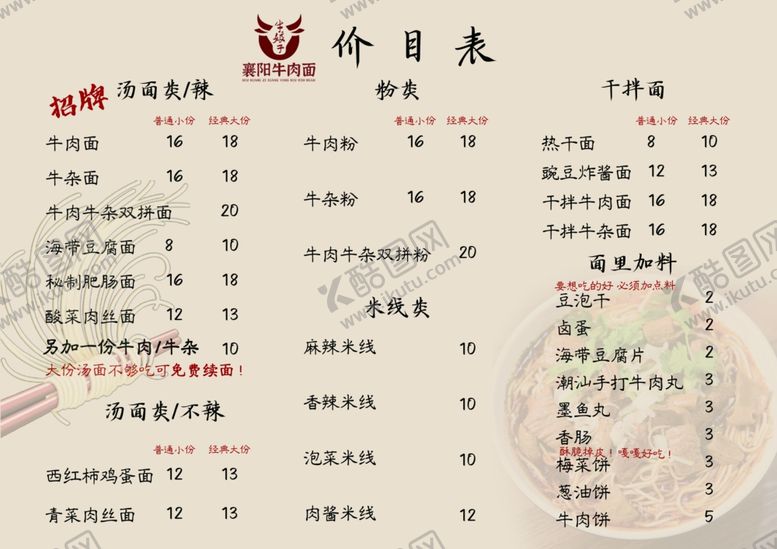 牛嫂子
襄阳牛肉面
价目表
招牌
汤面类/辣
普通小份 经典大份
牛肉面 16 18
牛杂面 16 18
牛肉牛杂双拼面 20
海带豆腐面 8 10
秘制肥肠面 16 18
酸菜肉丝面 12 13
另加一份牛肉/牛杂 10
大份汤面不够吃可免费续面！
汤面类/不辣
普通小份 经典大份
西红柿鸡蛋面 12 13
青菜肉丝面 12 13
粉类
普通小份 经典大份
牛肉粉 16 18
牛杂粉 16 18
牛肉牛杂双拼粉 20
米线类
麻辣米线 10
香辣米线 10
泡菜米线 10
肉酱米线 12
干拌面
普通小份 经典大份
热干面 8 10
豌豆炸酱面 12 13
干拌牛肉面 16 18
干拌牛杂面 16 18
面里加料
要想吃的好 必须加点料
豆泡干 2
卤蛋 2
海带豆腐片 2
潮汕手打牛肉丸 3
墨鱼丸 3
香肠 3
酥脆掉皮！嘎嘎好吃！
梅菜饼 3
葱油饼 3
牛肉饼 5
酷图网
www.ikutu.com